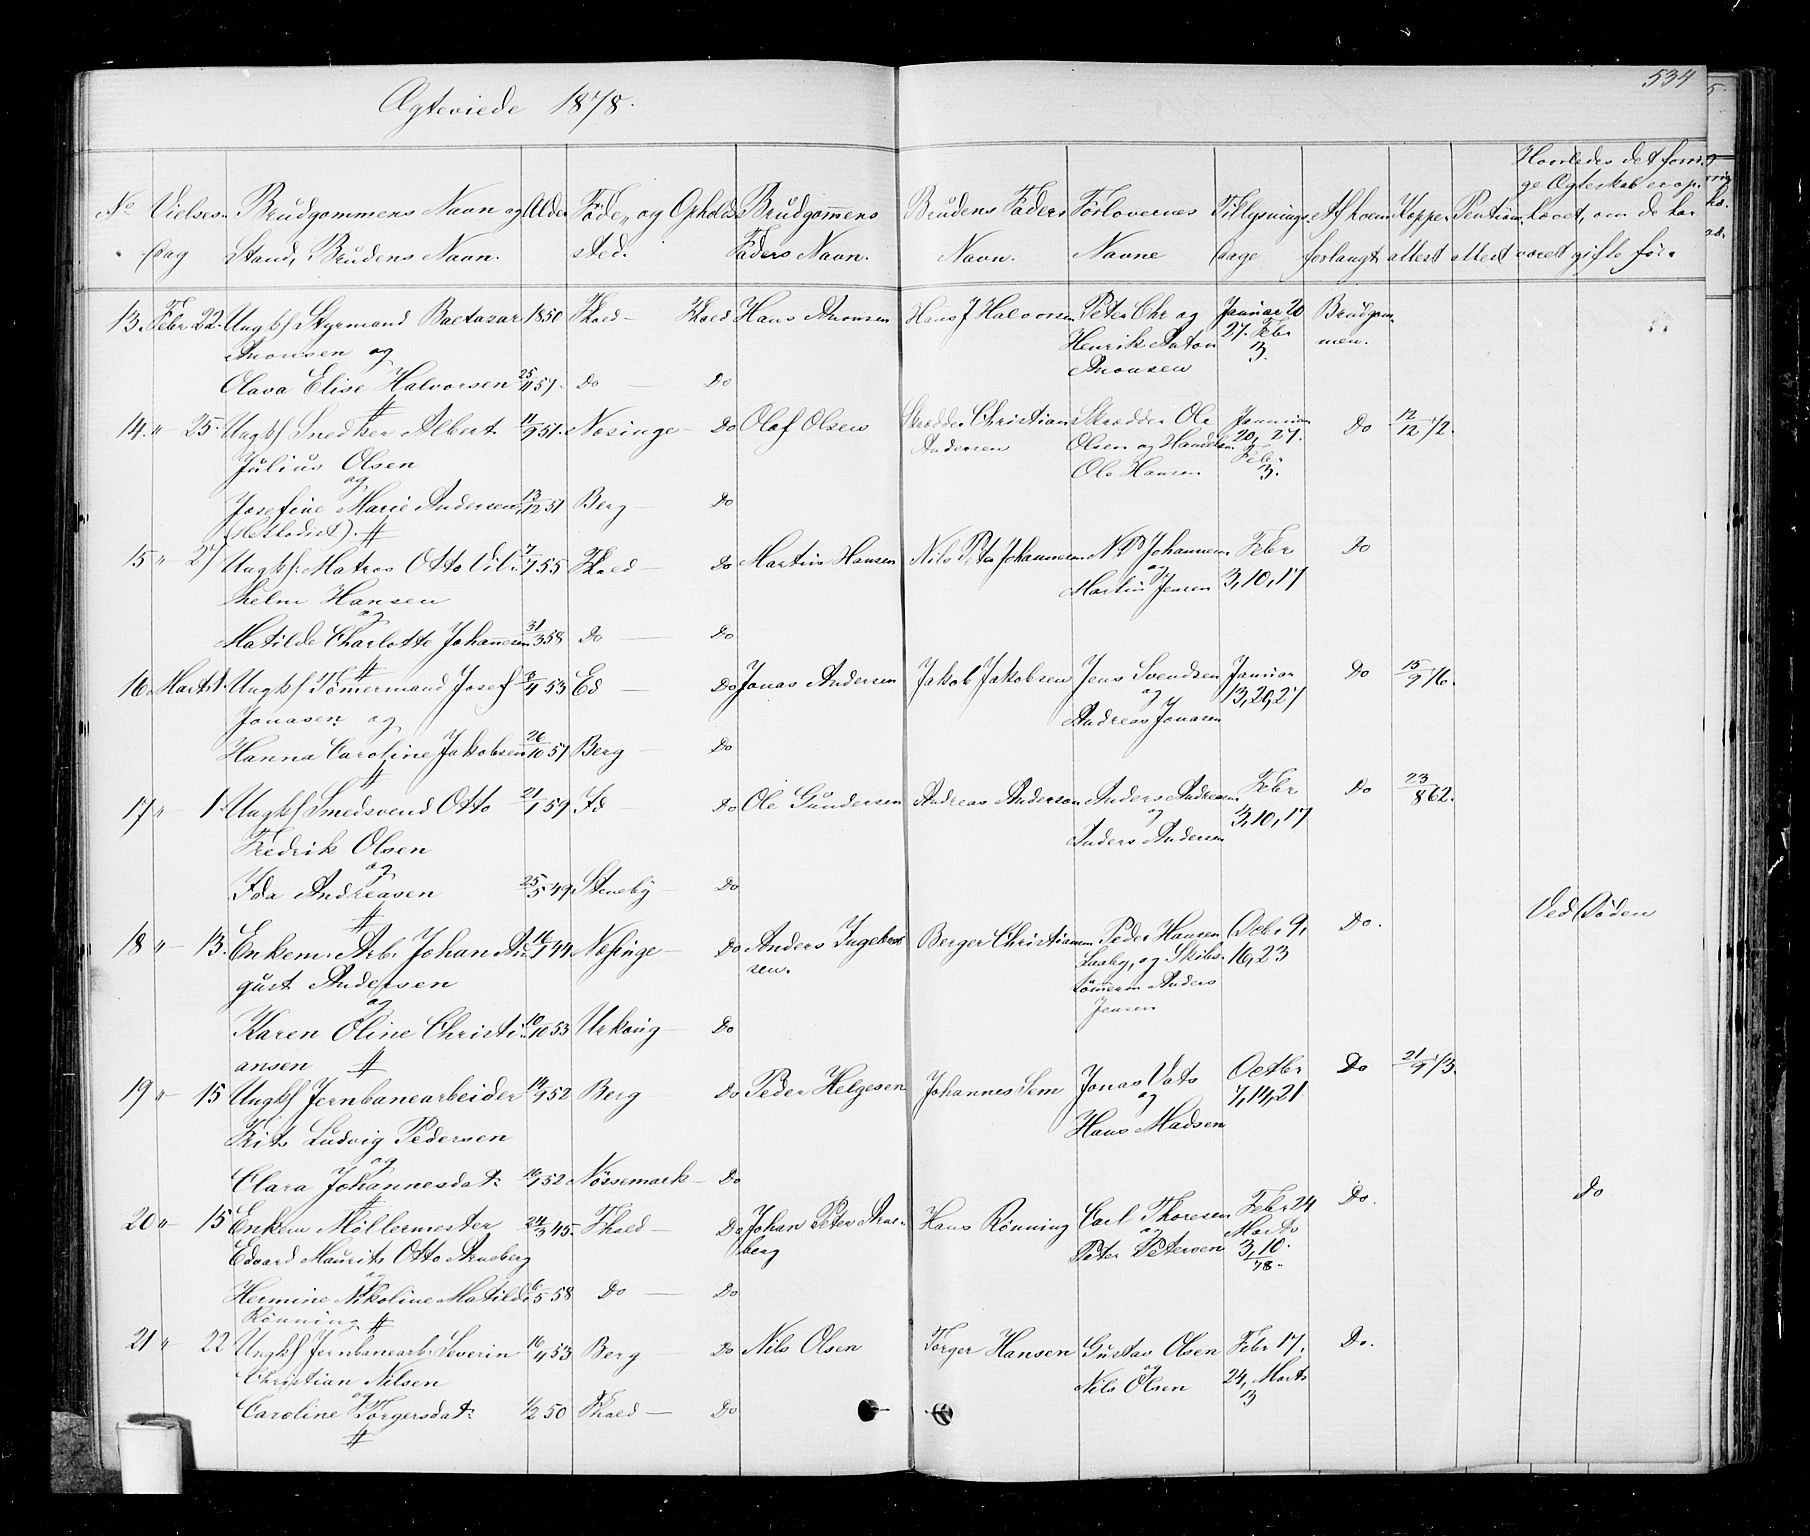 534
Ægteviede 1878.
No Vielses- Brudgommens Navn og Alder Føde- og Opholds Brudgommens Brudens Faders Forlovernes Tillysnings Af hvem Koppe Pention Hvorledes det forri-
dag Stand, Brudens Navn. sted. Faders Navn. Navn. Navne dage forlangt attest attest ge Ægteskab er op-
hævet, om de har
været gifte før.
13. Febr 22. Ungkf Styrmand Baltazar 1850 Fhald— Fhald Hans Anonsen Hans J Halvorsen Peter Chr og Januar 20 Brudgom-
Anonsen og Henrik Anton 27. Febr men.
Anonsen 3.
Olava Elise Halvorsen 25/11 57. Do — Do
14. " 25. Ungkf Snedker Albert 11/9 51. Næsinge— Do Olaf Olsen Skrædder Christian Skrædder Ole Januar Do 12/12 72.
Julius Olsen Andersen Olsen og Handelsm 20, 27.
og Ole Hansen Febr 3.
Josefine Marie Andersen 13/12 51 Berg — Do
(Methodist). #
15 " 27 Ungkf. Matros Otto Vil- 7/7 55 Fhald— Do Martin Hansen Nils Peter Johannesen N P Johannesen Febr Do
helm Hansen og 3, 10, 17
og Martin Jensen
Matilde Charlotte Johannesen 31/3 58 Do — Do
#
16 Marts 1. Ungkf Tømermand Josef 8/4 53 Ed — Do Jonas Andersen Jakob Jakobsen Jens Svendsen Januar Do 15/9 76.
Jonasen og og 13, 20, 27
Andreas Jonasen
Hanna Caroline Jakobsen 26/10 57 Berg — Do
#
17 " 1. Ungkf Smedsvend Otto 21/1 59 Id — Do Ole Gundersen Andreas Anderson Anders Andresen Febr Do 23/8 62.
Fredrik Olsen og 3, 10, 17
og Anders Andersen
Ida Andreasen 25/5 49 Steneby — Do
#
18 " 13. Enkem. Arb. Johan Au- 16/7 44 Næsinge— Do Anders Ingebret Berger Christiansen Peder Hansen Octob. 9, Do. Ved Døden
gust Andersen sen. Laaby, og Skibs- 16, 23
og tømerm Anders
Jensen
Karen Oline Christi- 10/10 53 Urskoug— Do
ansen #
19 " 15 Ungkf Jernbanearbeider 14/9 52 Berg — Do Peder Helgesen Johannes Sem Jonas Vats Octbr Do 21/9 73.
Frits Ludvig Pedersen og 7, 14, 21
og Hans Madsen
Clara Johannesdat. 16/7 52 Nössemark— Do
#
20 " 15 Enkem Möllermester 24/3 45. Fhald— Do Johan Peter Arne- Hans Rönning Carl Thoresen Febr 24 Do. Do
Edvard Maurits Otto Arneberg berg og Marts
og Peter Petersen 3, 10.
78.
Hermine Nikoline Matilde 6/5 58 Do — Do
Rönning #
21 " 22 Ungkf Jernbanearb. Severin 16/4 53 Berg — Do Nils Olsen Torger Hansen Gustav Olsen Febr 17, Do.
Christian Nilsen og 24, Marts
og Nils Olsen 3
Caroline Torgersdat. 1/2 50 Fhald — Do
#